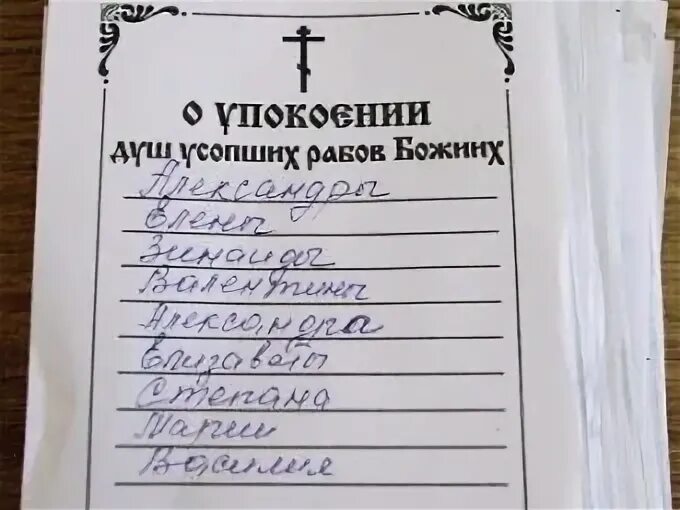 О УПОКОЕНИИ
душ усопших рабов Божиих
Александры
Елены
Зинаиды
Валентины
Александра
Елизаветы
Степана
Марии
Василия